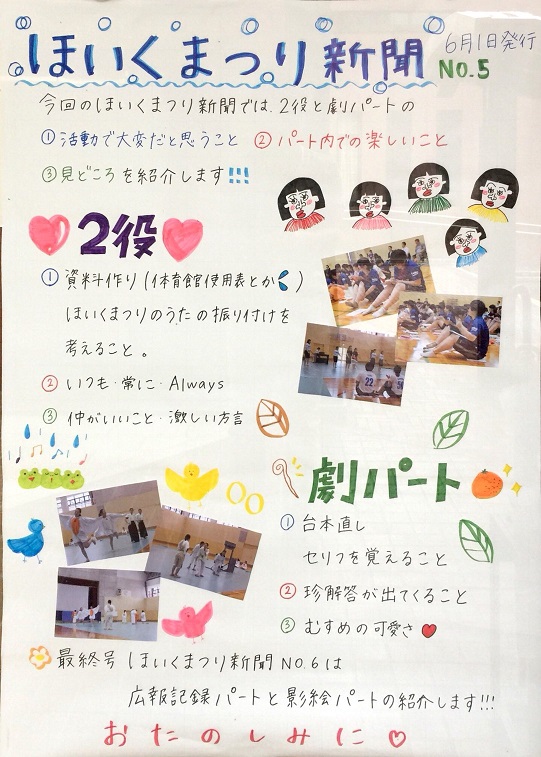 ほいくまつり新聞
6月1日発行
NO.5
今回のほいくまつり新聞では、2役と劇パートの
①活動で大変だと思うこと ②パート内での楽しいこと
③見どころを紹介します!!!
2役
① 資料作り(体育館使用表とか)
ほいくまつりのうたの振り付けを
考えること。
② いつも・常に・Always
③ 仲がいいこと・激しい方言
劇パート
① 台本直し
セリフを覚えること
② 珍解答が出てくること
③ むすめの可愛さ
最終号 ほいくまつり新聞NO.6は
広報記録パートと影絵パートの紹介します!!!
おたのしみに♡